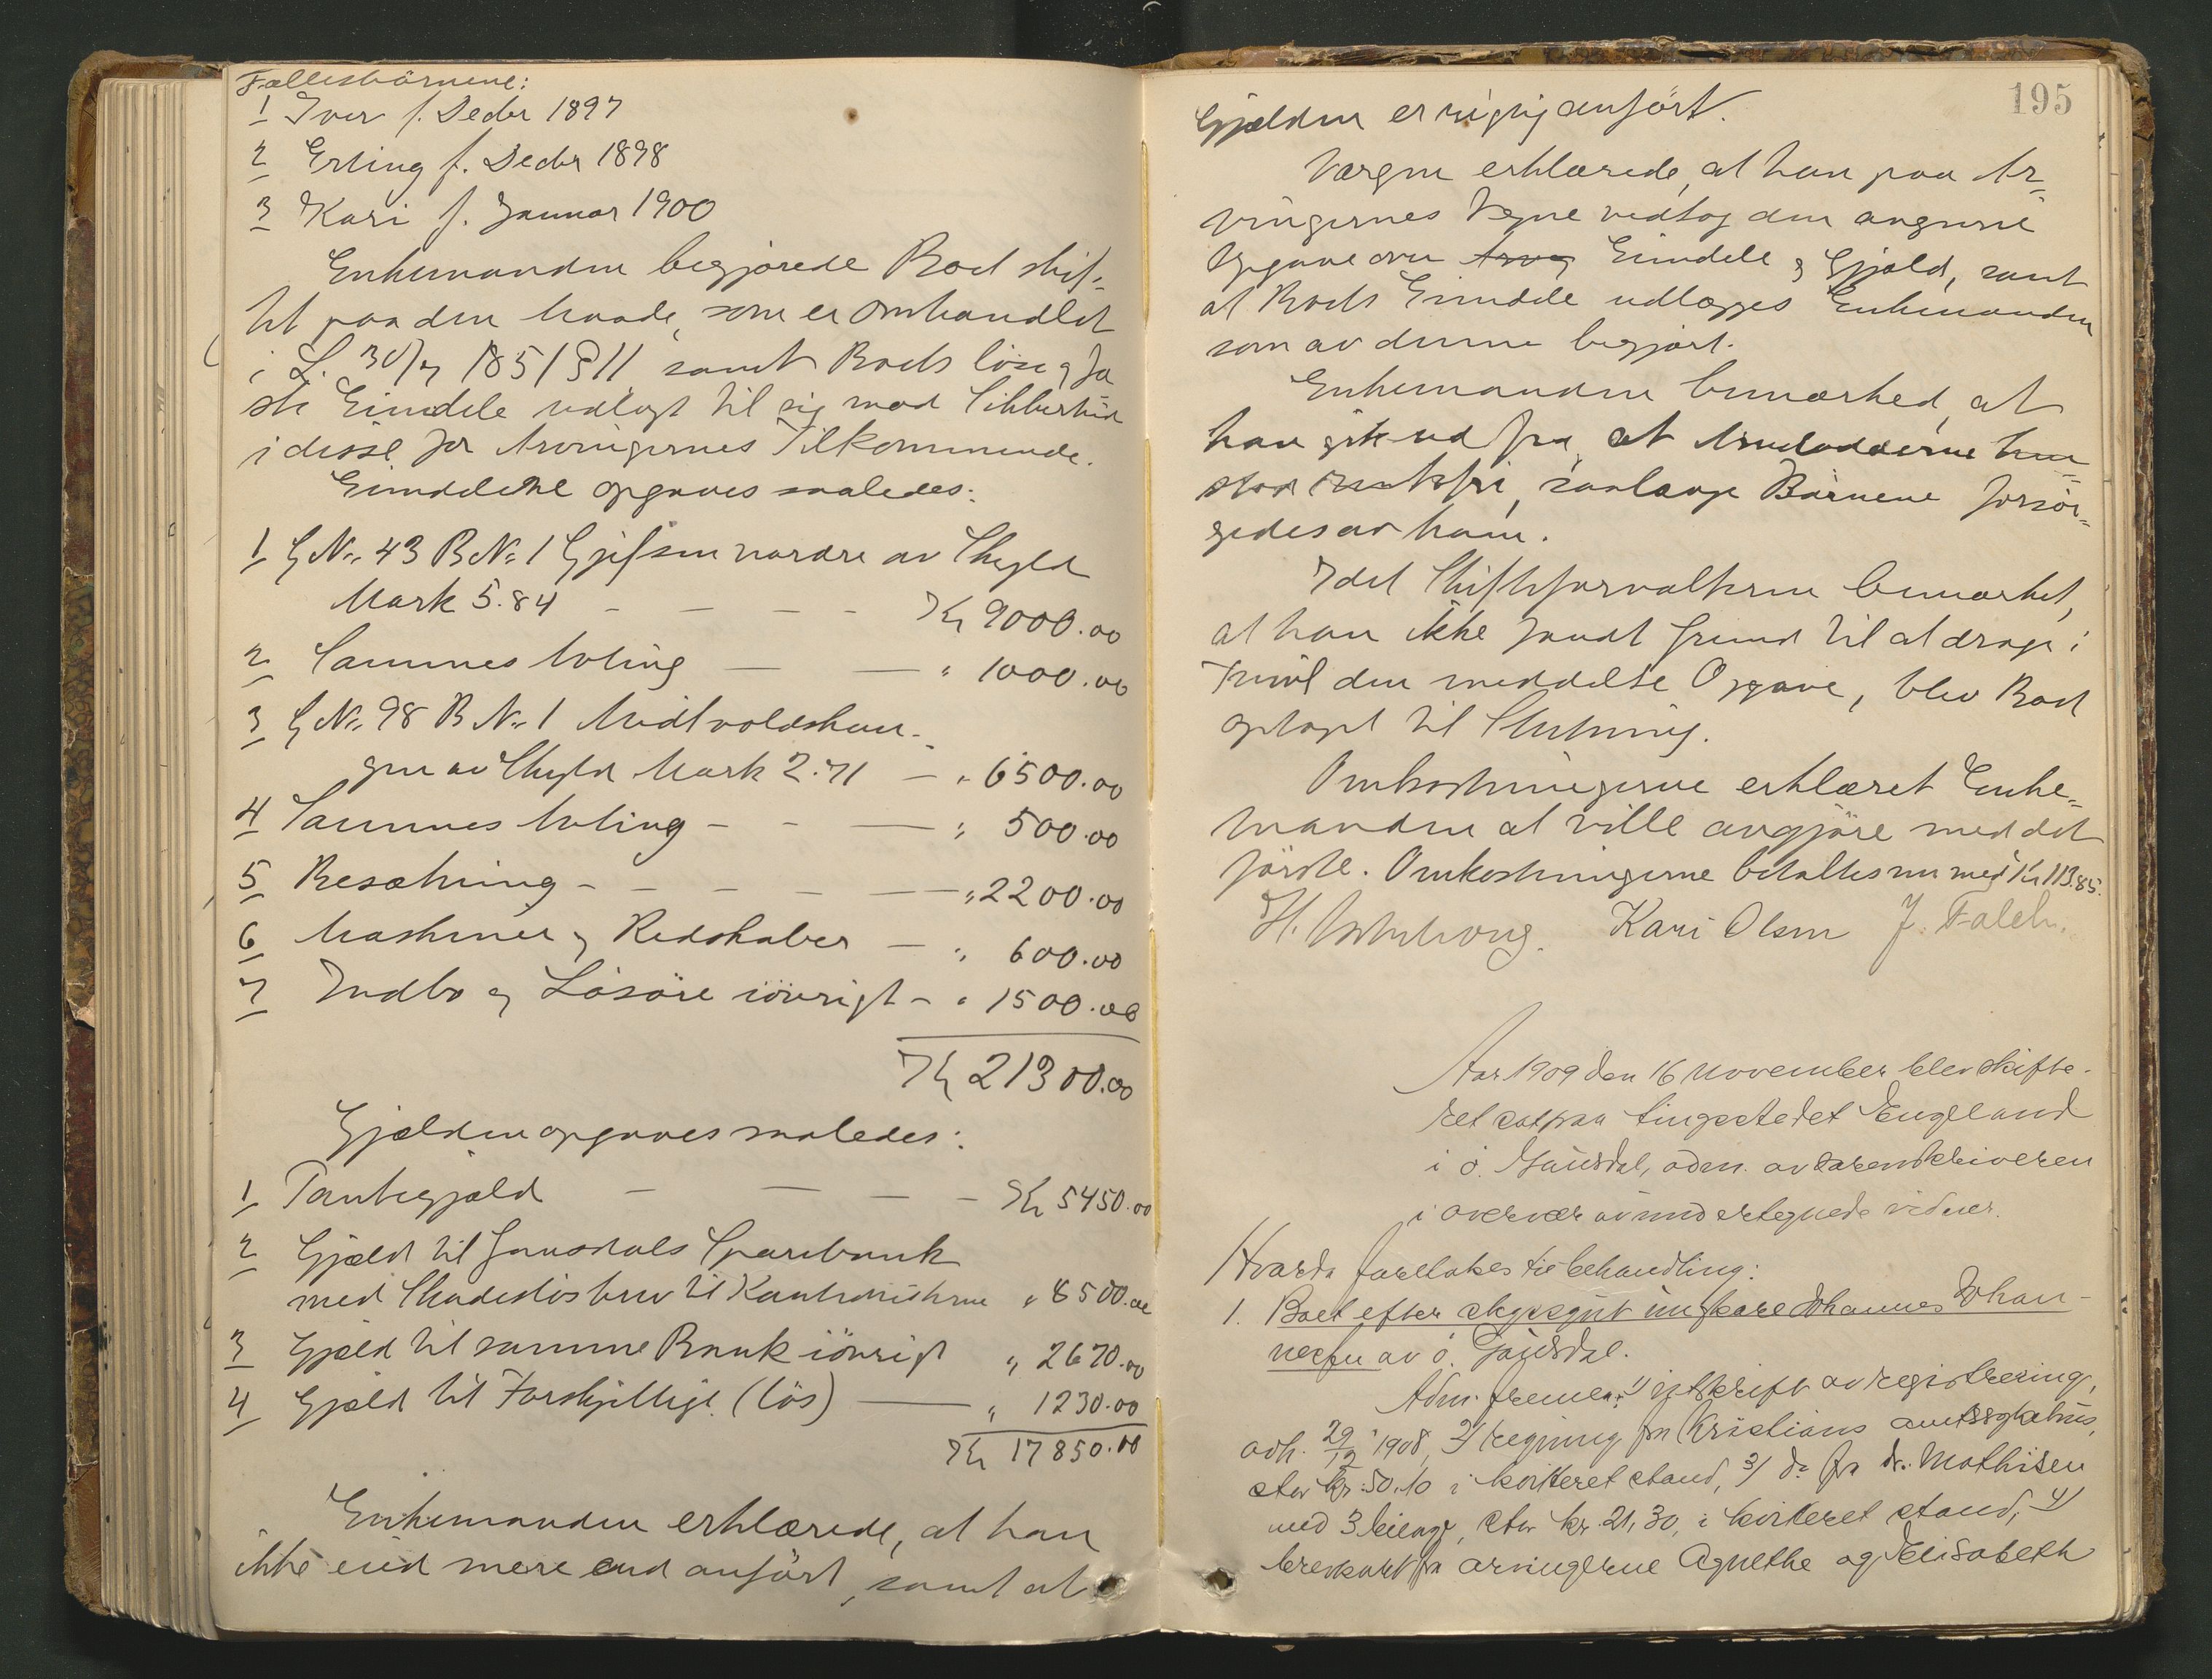 Fællesbörnene:
1 Iver f. Decbr 1897
2 Erling f. Decbr 1898
3 Kari f. Januar 1900
Enkemanden begjærede Boet skif-
tet paa den Maade, som er omhandlet
i L. 30/7 1851 § 11 samt Boets löse og fa
ste Eiendele udlagt til sig mod Sikkerhed
i disse for Arvingernes Tilkommende.
Eiendelene opgaves saaledes:
1 G.No. 43 B.No. 1 Gjefsen nordre av Skyld
Mark 5.84 - - - - Kr 9000.00
2 Sammes Avling — — " 1000.00
3 G.No. 98 B.No. 1 Midtvoldshau-
gen av Skyld Mark 2.71 — " 6500.00
4 Sammes Avling - - — " 500.00
5 Besætning - - - - — " 2200.00
6 Maskiner og Redskaber — " 600.00
7 Indbo og Lösöre iövrigt - " 1500.00
Kr 21300.00
Gjælden opgaves saaledes:
1 Pantegjæld — — — - Kr 5450.00
2 Gjæld til Gausdals Sparebank
med Skadeslösbrev til Kautionisterne " 8500.00
3 Gjæld til samme Bank iövrigt " 2670.00
4 Gjæld til Forskjellige (lös) — " 1230.00
Kr 17850.00
Enkemanden erklærede, at han
ikke eied mere end anfört, samt at
195
Gjælden er rigtig anfört.
Værgen erklærede, at han paa Ar-
vingernes Vegne vedtog den angivne
Opgave over Arv og Eiendele og Gjæld, samt
at Boets Eiendele udlægges Enkemanden
som av denne begjært.
Enkemanden bemærked, at
han gik ud fra, at Arvelodderne hen-
stod rentefri, saalænge Börnene forsör-
gedes av ham.
Idet Skifteforvalteren bemærket,
at han ikke fandt Grund til at drage i
Tvivl den meddelte Opgave, blev Boet
optaget til Slutning.
Omkostningerne erklæret Enke-
manden at ville avgjöre med det
förste. Omkostningerne betaltes nu med Kr 113.85.
Kari Olsen J. Falch.
Aar 1909 den 16 november blev skifte-
ret sat paa tingstedet Engeland
i ö. Gausdal, adm. av sorenskriveren
i overvær av undertegnede vidner.
Hvorda foretokes til behandling:
1. Boet efter ungkare Johannes Johan-
nesen av ö. Gausdal.
Adm. fremla: 1/ utskrift av registrering,
avh. 29/12 1908, 2/ regning fra Kristians amtssykehus,
stor kr. 50.10 i kvitteret stand, 3/ do fra dr. Mathisen
med 3 bilag, stor kr. 21,30, i kvitteret stand, 4/
brevkort fra arvingerne Agnethe og Elisabeth